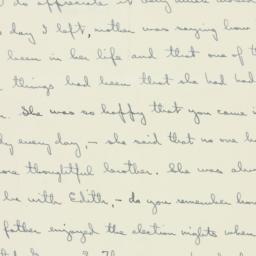 do appreciate it very much
day I left, mother was saying how
been in her life and that one of t
things had been that she had had
She was so happy that you came i
ly every day, – she said that no one h
ore thoughtful brother. She was alw
be with Edith, – do you remember how
father enjoyed the election nights when